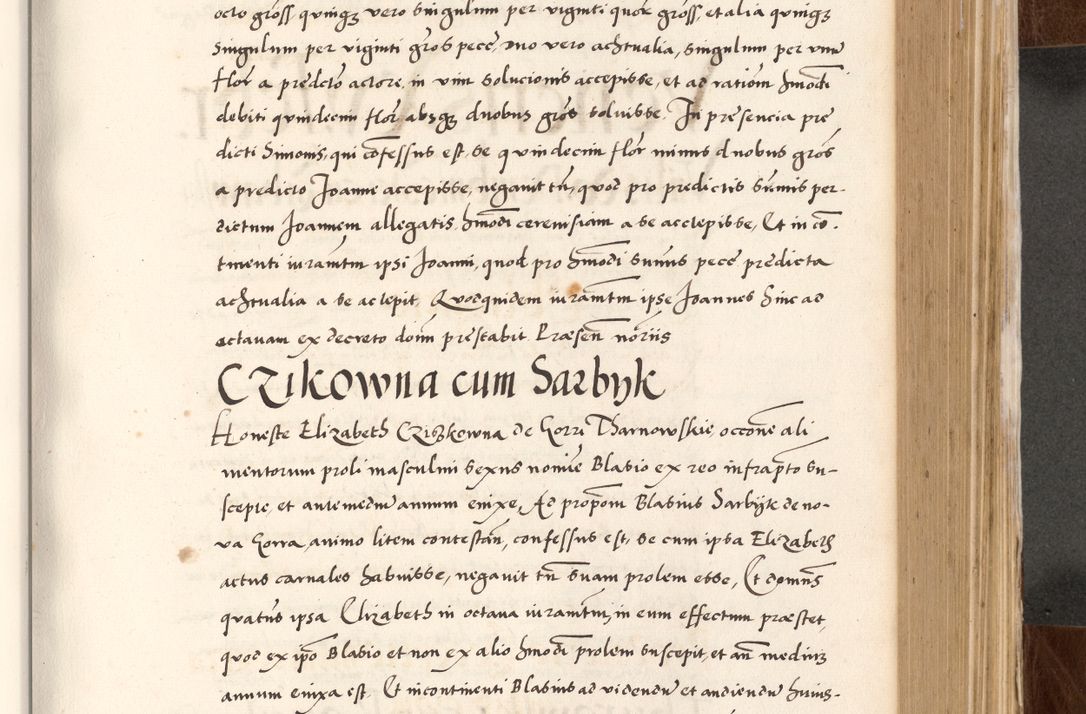 octo gross quinqz vero singulum per viginti quor gross, et alia quinqz
singulum per viginti gros pecc, mo vero achtualia, singulum per unu
flor a predcto actore in vim solucionis accepisse, et ad rationem hmodi
debiti quindecim flor absqz duobus gros solvisse. In presencia pre
dicti Simonis, qui confessus est, se quindecim flor minus duobus gros
a predicto Joanne accepisse, negavit tn, quod pro predictis sumis per
dictum Joannem allegatis hmodi cerevisiam a se accepisse, Et in co
tinenti iuramtm ipsi Joanni, quod pro hmodi sumis pecc predicta
achtualia a se accepit. Quodquidem iuramtm ipse Joannes hinc ad
octavam ex decreto domi prestabit. Præsen noriis
Czikowna cum Sarbyk
Honeste Elizabeth Czizkowna de Gorri Tharnowskie, occone ali
mentorum proli masculini sexus nomie Blasio ex reo infrapto su-
scepte, et antemediu annum enixe, Ad propom Blasius Sarbyk de no-
va Gorra, animo litem contestan, confessus est, se cum ipsa Elizabeth
actus carnales habuisse, negavit tn suam prolem esse, Et domns
quatus ipsa Elizabeth in octava iuramtm, in eum effectum præstet,
quod ex ipo Blasio et non ex alio hmodi prolem suscepit, et an mediuz
annum enixa est. Et incontinenti Blasius ad videndu et audiendu huius-